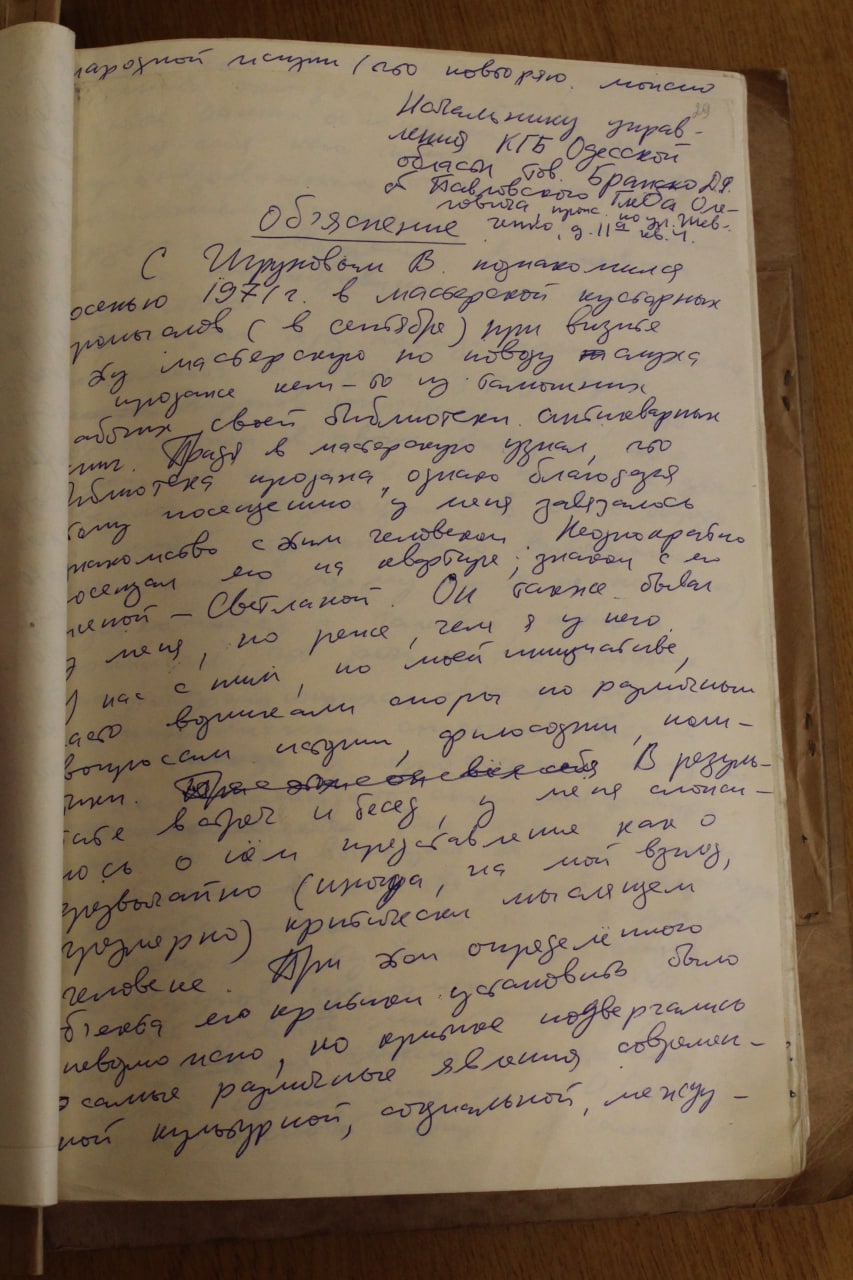 народной жизни (что повторяю. можно
29
Начальнику управ-
ления КГБ Одесской
области тов. Бражко Д.Ф.
от Павловского Глеба Оле-
говича, прож. по ул. Шев-
Объяснение ченко, д. 11а кв. 4.
С Игруновым В. познакомился
осенью 1971 г. в мастерской кустарных
промыслов (в сентябре) при визите
эту мастерскую по поводу слуха
продаже кем-то из тамошних
рабочих своей библиотеки антикварных
книг. Придя в мастерскую узнал, что
библиотека продана, однако благодаря
тому посещению у меня завязалось
знакомство с этим человеком. Неоднократно
посещал его на квартире; знаком с его
женой – Светланой. Он также бывал
у меня, но реже, чем я у него.
У нас с ним, по моей инициативе,
часто возникали споры по различным
вопросам истории, философии, поли-
тики. В резуль-
тате встреч и бесед, у меня сложи-
лось о нём представление как о
чрезвычайно (иногда, на мой взгляд,
чрезмерно) критически мыслящем
человеке. При этом определённого
объекта его критики установить было
невозможно, но критике подвергались
самые различные явления современ-
ной культурной, социальной, между-